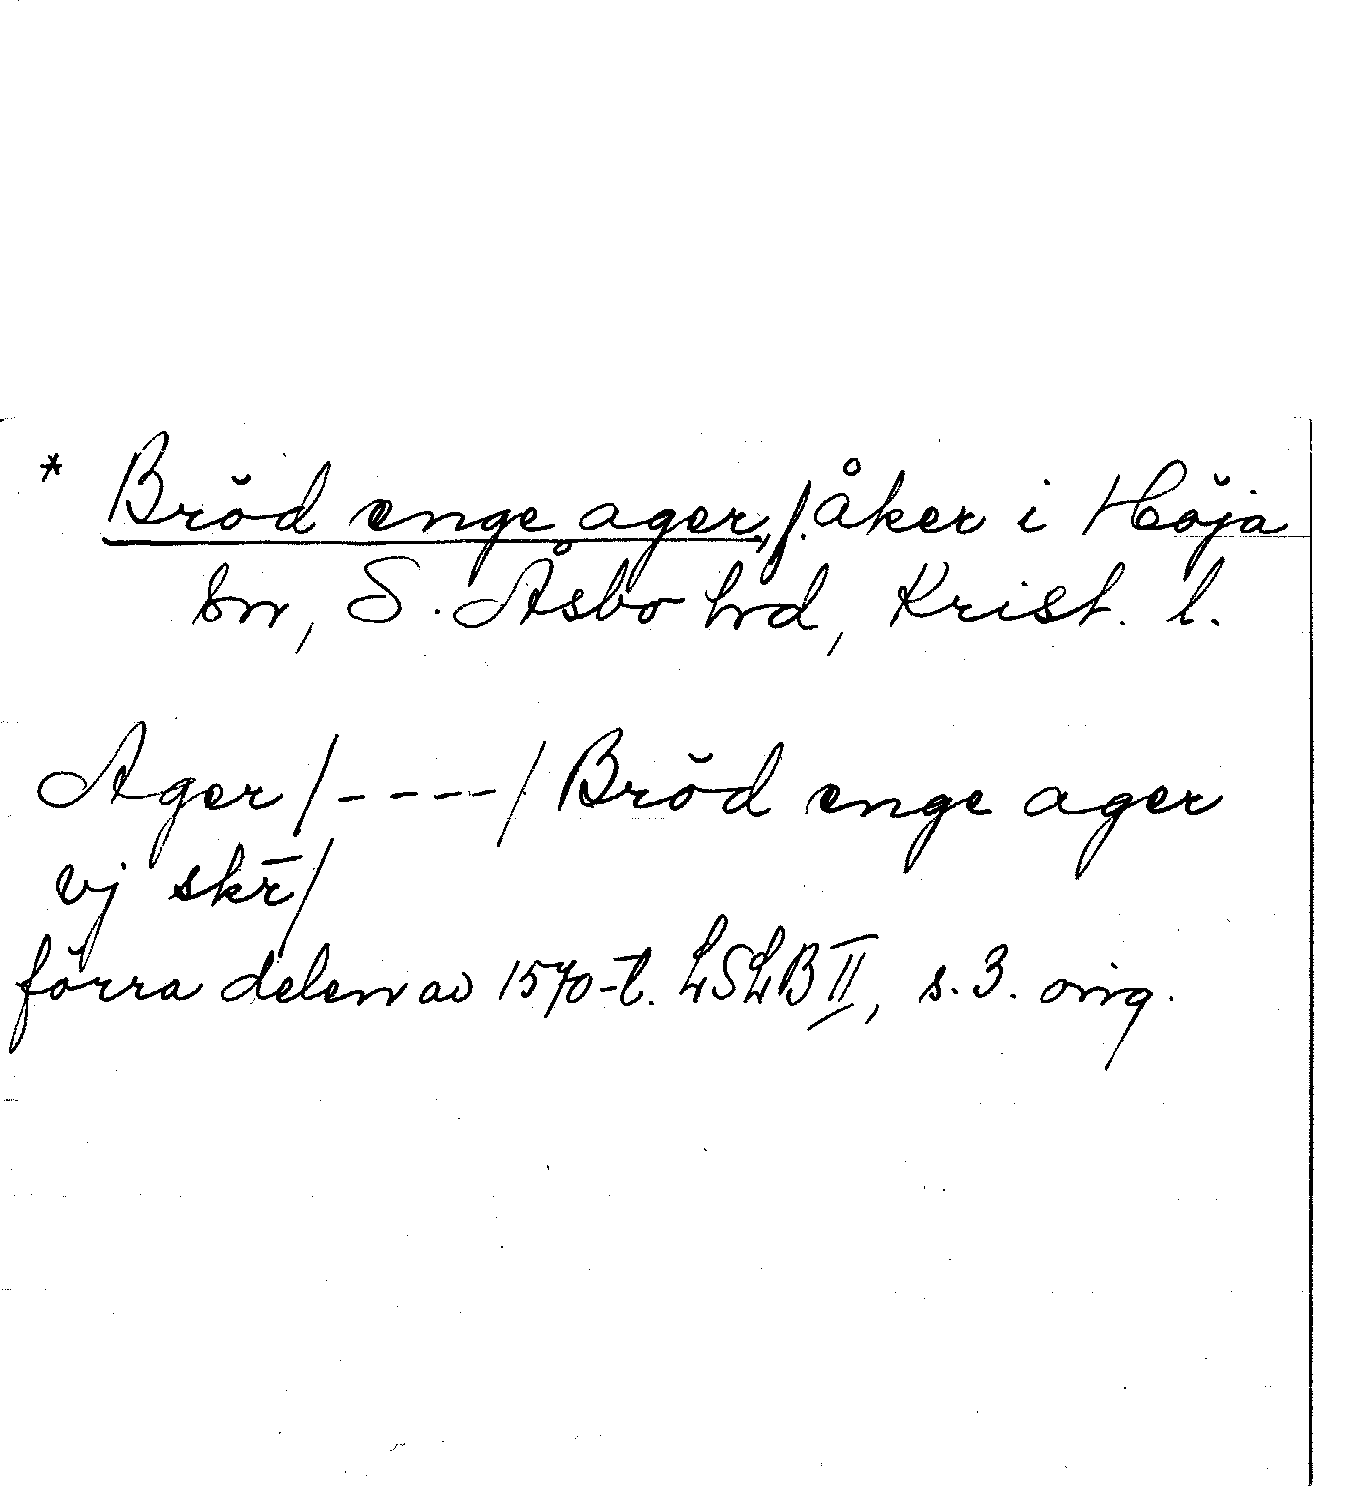 * Bröd enge ager, f. åker i Höja
sn, S. Åsbo hrd, Krist. l.
Ager/----/Bröd enge ager
vj skr̄/
förra delen av 1570-t. LSLB II, s. 3. orig.